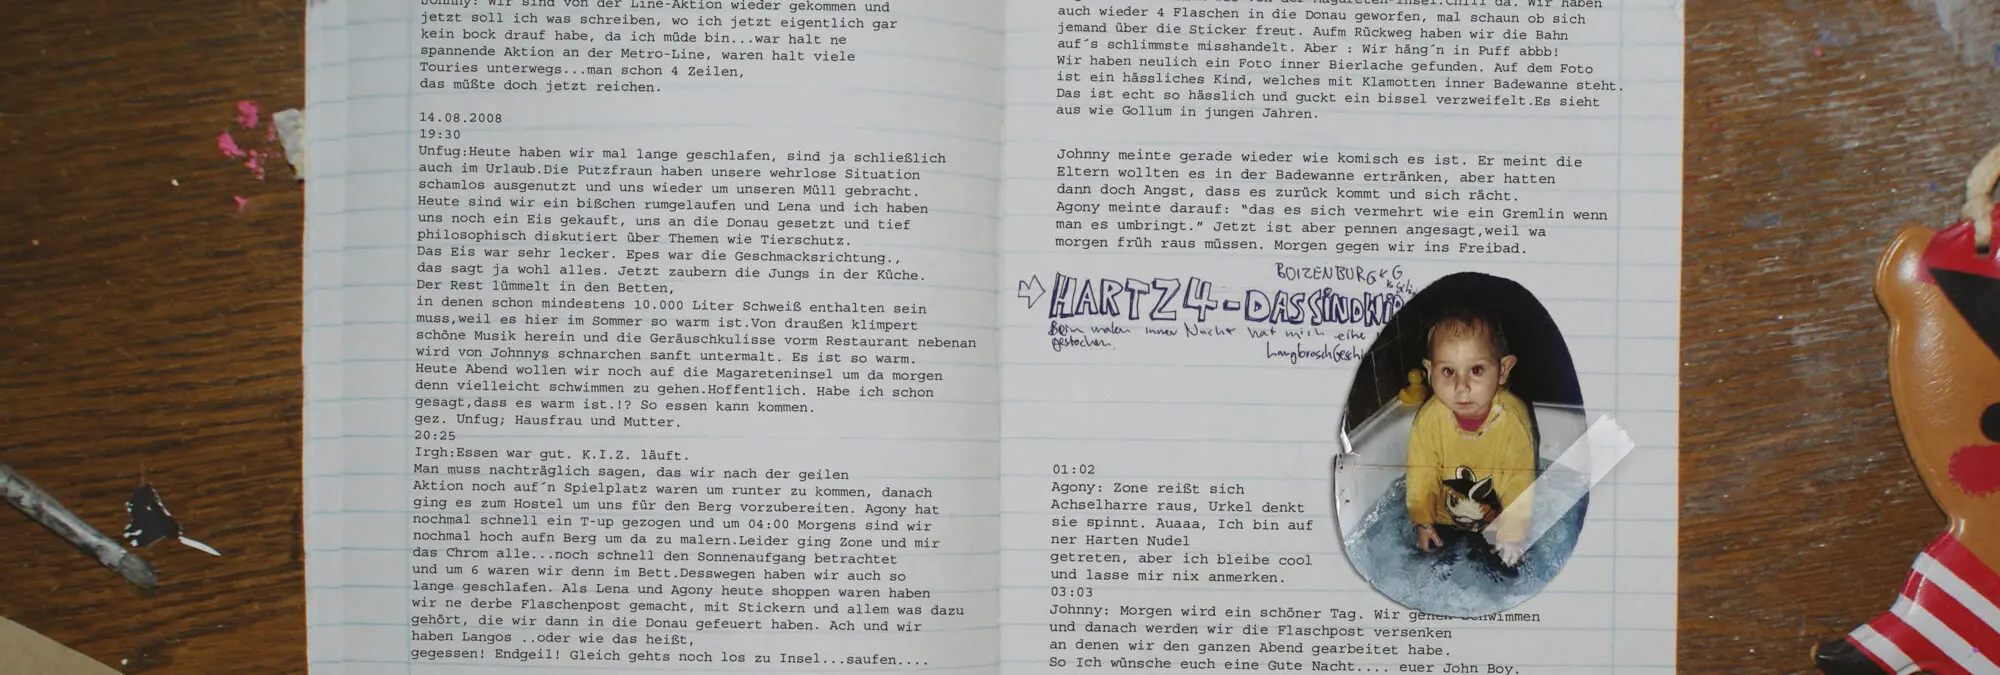 Johnny: Wir sind von der Line-Aktion wieder gekommen und
jetzt soll ich was schreiben, wo ich jetzt eigentlich gar
kein bock drauf habe, da ich müde bin...war halt ne
spannende Aktion an der Metro-Line, waren halt viele
Touries unterwegs...man schon 4 Zeilen,
das müßte doch jetzt reichen.
14.08.2008
19:30
Unfug:Heute haben wir mal lange geschlafen, sind ja schließlich
auch im Urlaub.Die Putzfraun haben unsere wehrlose Situation
schamlos ausgenutzt und uns wieder um unseren Müll gebracht.
Heute sind wir ein bißchen rumgelaufen und Lena und ich haben
uns noch ein Eis gekauft, uns an die Donau gesetzt und tief
philosophisch diskutiert über Themen wie Tierschutz.
Das Eis war sehr lecker. Epes war die Geschmacksrichtung.,
das sagt ja wohl alles. Jetzt zaubern die Jungs in der Küche.
Der Rest lümmelt in den Betten,
in denen schon mindestens 10.000 Liter Schweiß enthalten sein
muss,weil es hier im Sommer so warm ist.Von draußen klimpert
schöne Musik herein und die Geräuschkulisse vorm Restaurant nebenan
wird von Johnnys schnarchen sanft untermalt. Es ist so warm.
Heute Abend wollen wir noch auf die Magareteninsel um da morgen
denn vielleicht schwimmen zu gehen.Hoffentlich. Habe ich schon
gesagt,dass es warm ist.!? So essen kann kommen.
gez. Unfug; Hausfrau und Mutter.
20:25
Irgh:Essen war gut. K.I.Z. läuft.
Man muss nachträglich sagen, das wir nach der geilen
Aktion noch auf´n Spielplatz waren um runter zu kommen, danach
ging es zum Hostel um uns für den Berg vorzubereiten. Agony hat
nochmal schnell ein T-up gezogen und um 04:00 Morgens sind wir
nochmal hoch aufn Berg um da zu malern.Leider ging Zone und mir
das Chrom alle...noch schnell den Sonnenaufgang betrachtet
und um 6 waren wir denn im Bett.Desswegen haben wir auch so
lange geschlafen. Als Lena und Agony heute shoppen waren haben
wir ne derbe Flaschenpost gemacht, mit Stickern und allem was dazu
gehört, die wir dann in die Donau gefeuert haben. Ach und wir
haben Langos ..oder wie das heißt,
gegessen! Endgeil! Gleich gehts noch los zu Insel...saufen....
auch wieder 4 Flaschen in die Donau geworfen, mal schaun ob sich
jemand über die Sticker freut. Aufm Rückweg haben wir die Bahn
auf´s schlimmste misshandelt. Aber : Wir häng´n in Puff abbb!
Wir haben neulich ein Foto inner Bierlache gefunden. Auf dem Foto
ist ein hässliches Kind, welches mit Klamotten inner Badewanne steht.
Das ist echt so hässlich und guckt ein bissel verzweifelt.Es sieht
aus wie Gollum in jungen Jahren.
Johnny meinte gerade wieder wie komisch es ist. Er meint die
Eltern wollten es in der Badewanne ertränken, aber hatten
dann doch Angst, dass es zurück kommt und sich rächt.
Agony meinte darauf: “das es sich vermehrt wie ein Gremlin wenn
man es umbringt.” Jetzt ist aber pennen angesagt,weil wa
morgen früh raus müssen. Morgen gegen wir ins Freibad.
BOIZENBURG
HARTZ4-DASSINDWIR
Beim malen inner Nacht hat mich eine
gestochen.
01:02
Agony: Zone reißt sich
Achselharre raus, Urkel denkt
sie spinnt. Auaaa, Ich bin auf
ner Harten Nudel
getreten, aber ich bleibe cool
und lasse mir nix anmerken.
03:03
Johnny: Morgen wird ein schöner Tag. Wir gehen schwimmen
und danach werden wir die Flaschpost versenken
an denen wir den ganzen Abend gearbeitet habe.
So Ich wünsche euch eine Gute Nacht.... euer John Boy.